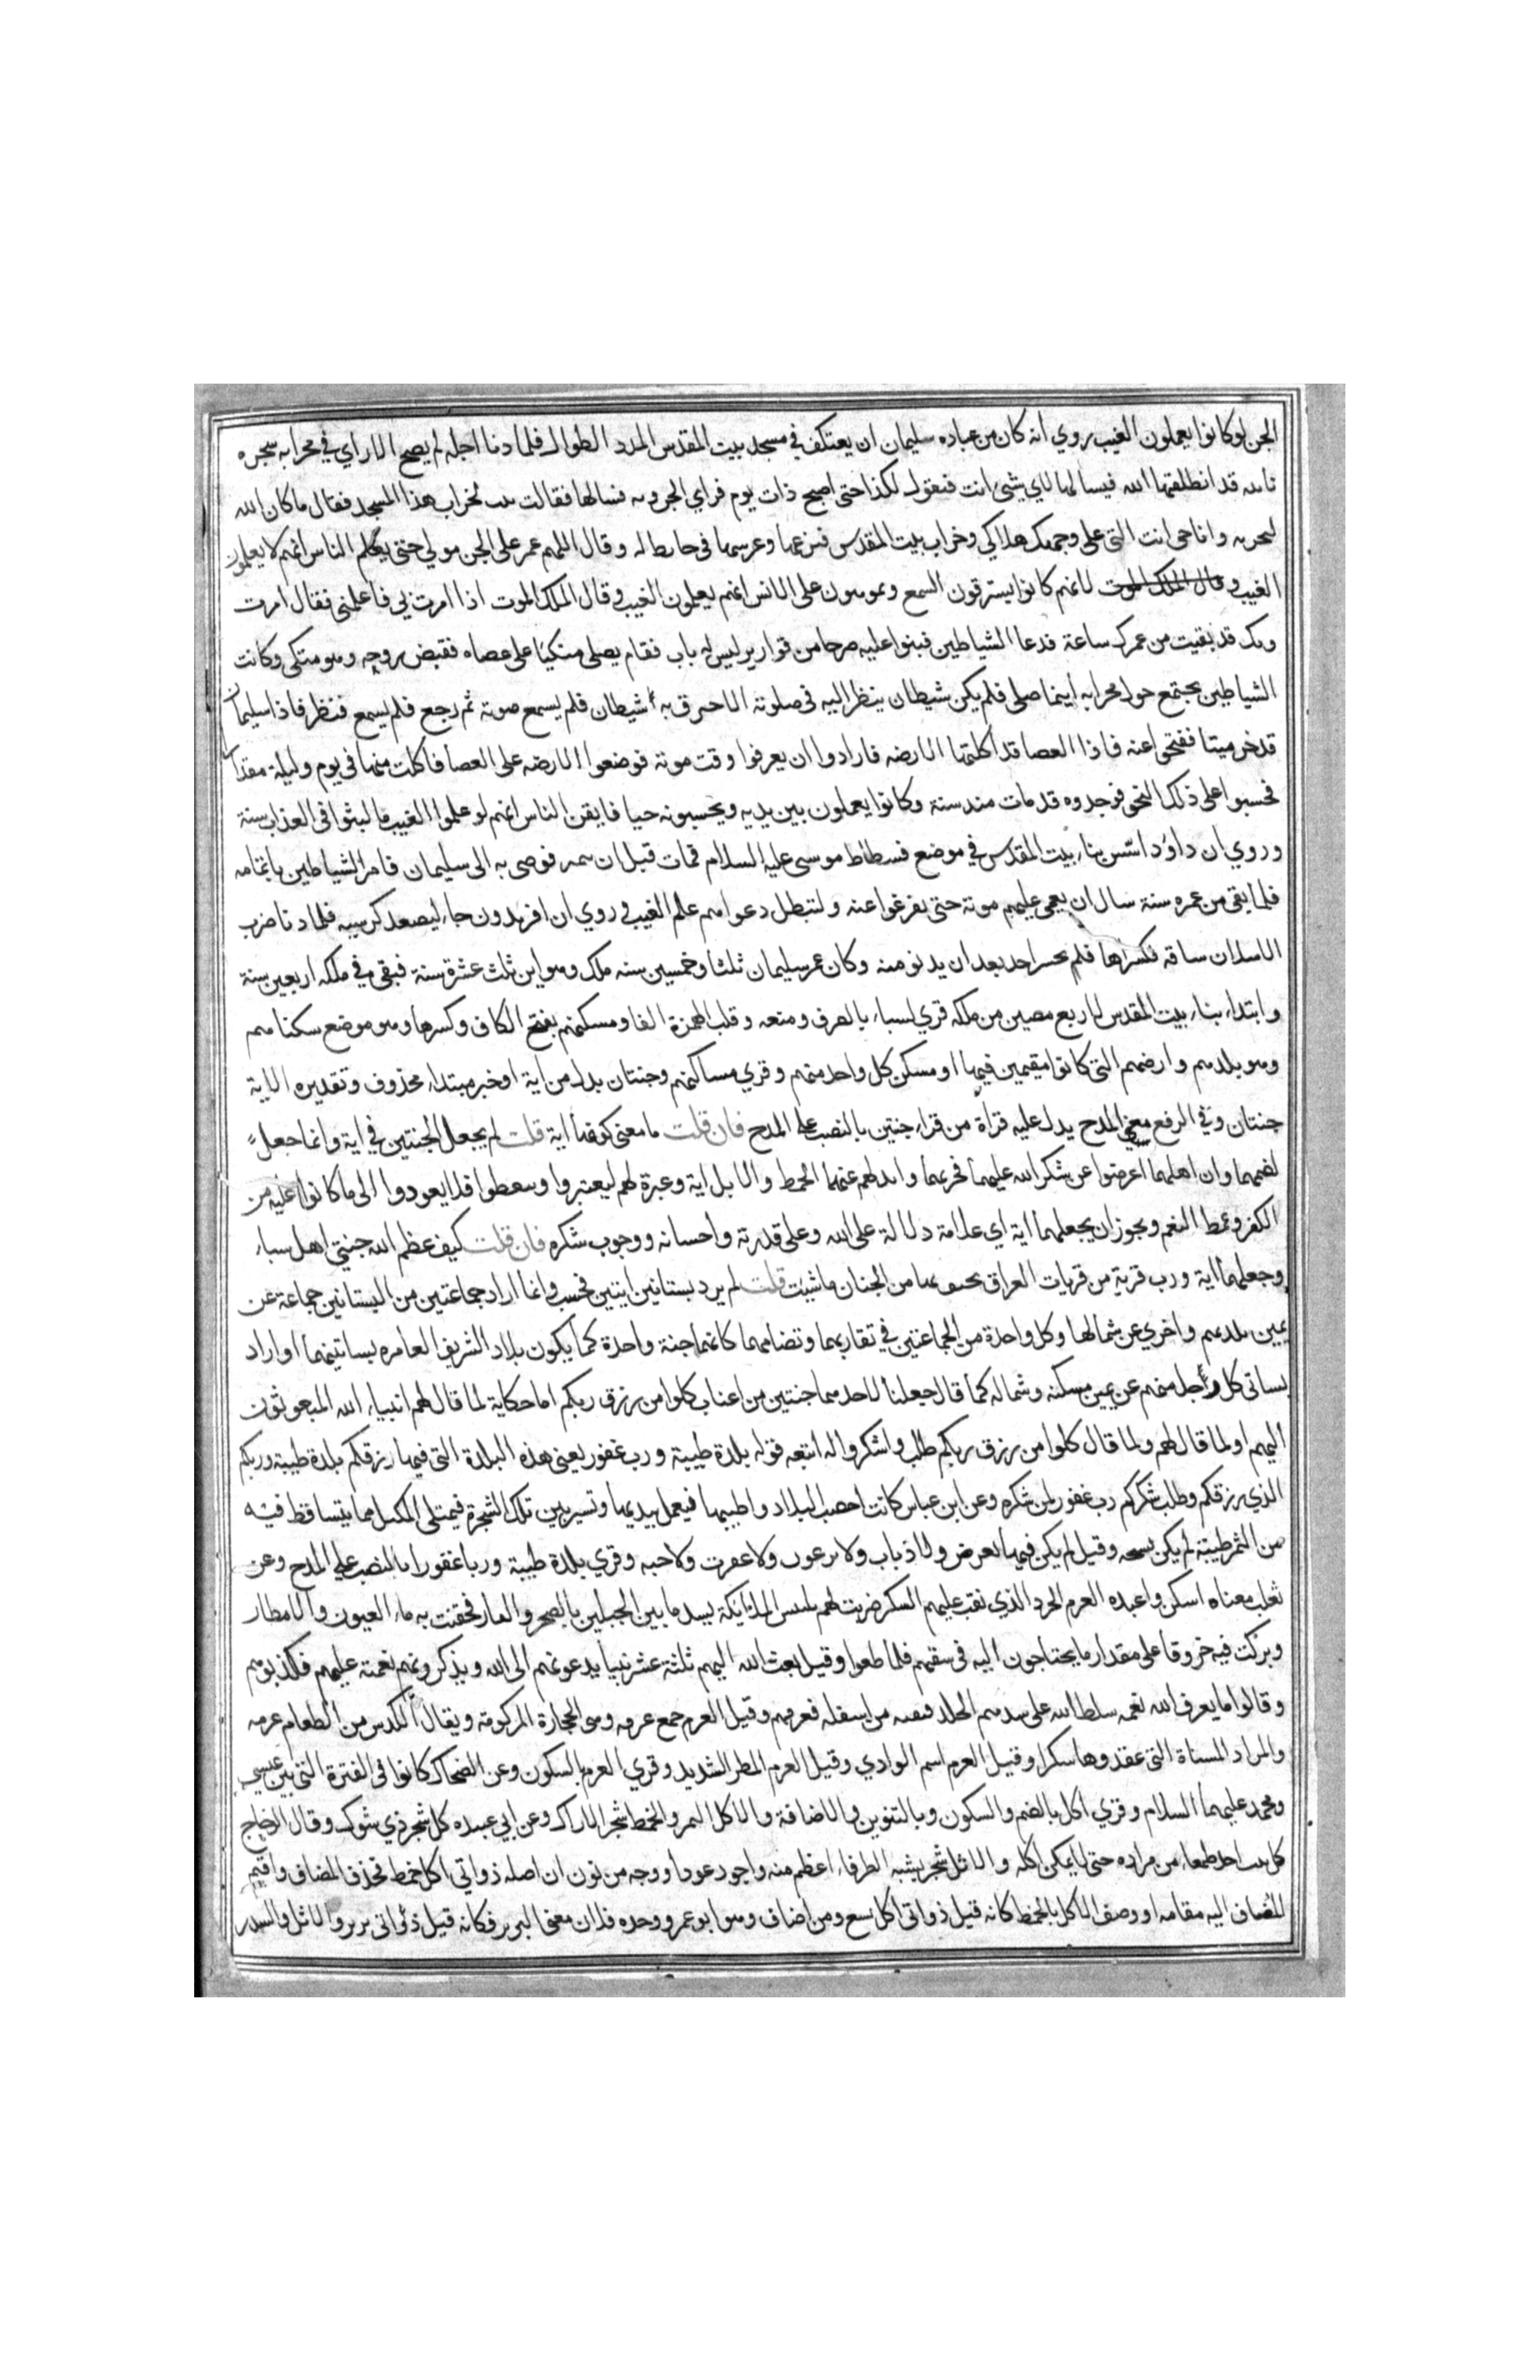 الجن لو كانوا يعملون الغيب روي انه كان من عباده سليمان ان يعتكف في مسجد بيت المقدس المدد الطوال فلما دنا اجله لم يصبح الا راي في محرابه سجره
نابته قد انطلقها الله فيسالها لاي شئ انت فتقول لكذا حتى اصبح ذات يوم فراي الخروبه فسالها فقالت نبت لخراب هذا المسجد فقال ما كان الله
ليخربه وانا حي انت التي على وجهك هلاكي وخراب بيت المقدس فنزعها وغرسها في حايط له وقال اللهم عم على الجن موتي حتى يعلم الناس انهم لا يعلمون
الغيب لانهم كانوا يسترقون السمع ويموهون على الانس انهم يعلمون الغيب وقال لملك الموت اذا امرت بي فاعلمني فقال امرت
وبك قد بقيت من عمرك ساعة فدعا الشياطين فبنوا عليه صرحا من قوارير ليس له باب فقام يصلي متكيا على عصاه فقبض روحه وهو متكي وكانت
الشياطين تجتمع حول محرابه اينما صلى فلم يكن شيطان ينظر اليه في صلوته الا احترق به شيطان فلم يسمع صوته ثم رجع فلم يسمع فنظر فاذا سليمان
قد خر ميتا ففتحوا عنه فاذا العصا قد اكلتها الارضه فارادوا ان يعرفوا وقت موته فوضعوا الارضه على العصا فاكلت منها في يوم وليلة مقدارا
فحسبوا على ذلك النحو فوجدوه قد مات منذ سنة وكانوا يعملون بين يديه ويحسبونه حيا فايقن الناس انهم لو علموا الغيب ما لبثوا في العذاب سنة
وروي ان داود اسس بناء بيت المقدس في موضع فسطاط موسى عليه السلام فمات قبل ان يتمه فوصى به الى سليمان فامر الشياطين باتمامه
فلما بقي من عمره سنة سال ان يعمى عليهم موته حتى يفرغوا عنه ولتبطل دعواهم علم الغيب وروي ان افريدون جاء ليصعد كرسيه فلما دنا ضرب
الاسدان ساقه فكسراها فلم يجسر احد بعد ان يدنو منه وكان عمر سليمان ثلثا وخمسين سنه ملك وهو ابن ثلث عشرة سنة فبقي في ملكه اربعين سنة
وابتداء بناء بيت المقدس لاربع مضين من ملكه قري لسباء بالصرف ومنعه وقلب الهمزة الفا ومسكنهم بفتح الكاف وكسرها وهو موضع سكناهم
وهو بلدهم وارضهم التي كانوا مقيمين فيها او مسكن كل واحد منهم وقري مساكنهم وجنتان بدل من اية او خبر مبتداء محذوف وتقديره الاية
جنتان وفي الرفع معني المدح يدل عليه قراة من قراء جنتين بالنصب على المدح فان قلت ما معنى كونهما اية قلت لم يجعل الجنتين في اية وانما جعل
لضمهما وان اهلهما اعرضوا عن شكر الله عليهما فخربهما وابدلهم عنهما الخمط والاثل اية وعبرة لهم ليعتبروا ويتعظوا فلا يعودوا الى ما كانوا عليه من
الكفر وغمط النعم ويجوز ان يجعلهما اية اي علامة دلالة على الله وعلى قدرته واحسانه ووجوب شكره فان قلت كيف عظم الله جنتي اهل سباء
وجعلهما اية ورب قرية من قريات العراق يحتف بها من الجنان ما شيت قلت لم يرد بستانين اثنين فحسب وانما اراد جماعتين من البساتين جماعة عن
يمين بلدهم واخري عن شمالها وكل واحدة من الجماعتين في تقاربهما وتضامهما كانهما جنة واحدة كما يكون بلاد الشريف العامره بساتينهما او اراد
بساتي كل رجل منهم عن يمين مسكنه وشماله كما قال جعلنا لاحدهما جنتين من اعناب كلوا من رزق ربكم اما حكاية لما قال لهم انبياء الله المبعوثون
اليهم او لما قال لهم ولما قال كلوا من رزق ربكم طلب واشكروا له اتبعه قوله بلدة طيبة ورب غفور يعني هذه البلدة التي فيها رزقكم بلدة طيبة وربكم
الذي رزقكم وطلب شكركم رب غفور لمن شكره وعن ابن عباس كانت اخصب البلاد واطيبها فيعمل بيديها وتسير بين تلك الشجرة فيمتلى المكتل مما يتساقط فيه
من الثمر طيبة لم يكن بسبخه وقيل لم يكن فيها بعوض ولا ذباب ولا برغوث ولا عقرب ولا حيه وقري بلدة طيبة وربا غفورا بالنصب على المدح وعن
ثعلب معناه اسكن واعبده العرم الجرد الذي نقب عليهم السكر ضربت لهم بلقيس الملايكة بسد ما بين الجبلين بالصخر والقار فحقنت به ماء العيون والامطار
وبركت فيه خروقا على مقدار ما يحتاجون اليه في سقيهم فلما طغوا وقيل بعث الله اليهم ثلثة عشر نبيا يدعونهم الى الله ويذكرونهم نعمته عليهم فكذبوهم
وقالوا ما يعرف الله نعمه سلط الله على سدهم الخلد فنقبه من اسفله فغرقهم وقيل العرم جمع عرمه وهي الحجارة المركومة ويقال الكدس من الطعام عرمه
والمراد المسناة التي عقدوها سكرا وقيل العرم اسم الوادي وقيل العرم المطر الشديد وقري العرم بالسكون وعن الضحاك كانوا في الفترة التي بين عيسى
ومحمد عليهما السلام وقري اكل بالضم والسكون وبالتنوين والاضافة والاكل الثمر والخمط شجر الاراك وعن ابي عبيده كل شجر ذي شوك وقال الزجاج
كل نبت اخذ طعما من مراره حتى لا يمكن اكله والاثل شجر يشبه الطرفاء اعظم منه واجود عودا ووجه من نون ان اصله ذواتي اكل اكل خمط فحذف المضاف واقيم
المضاف اليه مقامه او وصف الاكل بالخمط كانه قيل ذواتي اكل بشع ومن اضاف وهو ابو عمرو وحده فلان معنى البرير فكانه قيل ذواتي برير والاثل والسدر